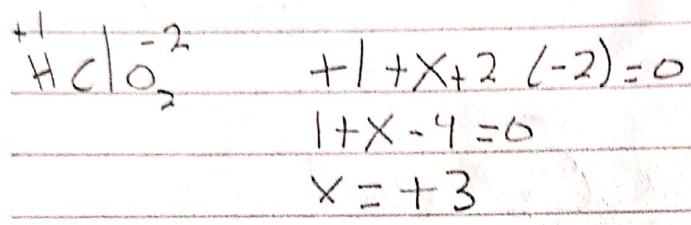 +1 -2
HClO2 +1+x+2(-2)=0
1+x-4=0
x=+3